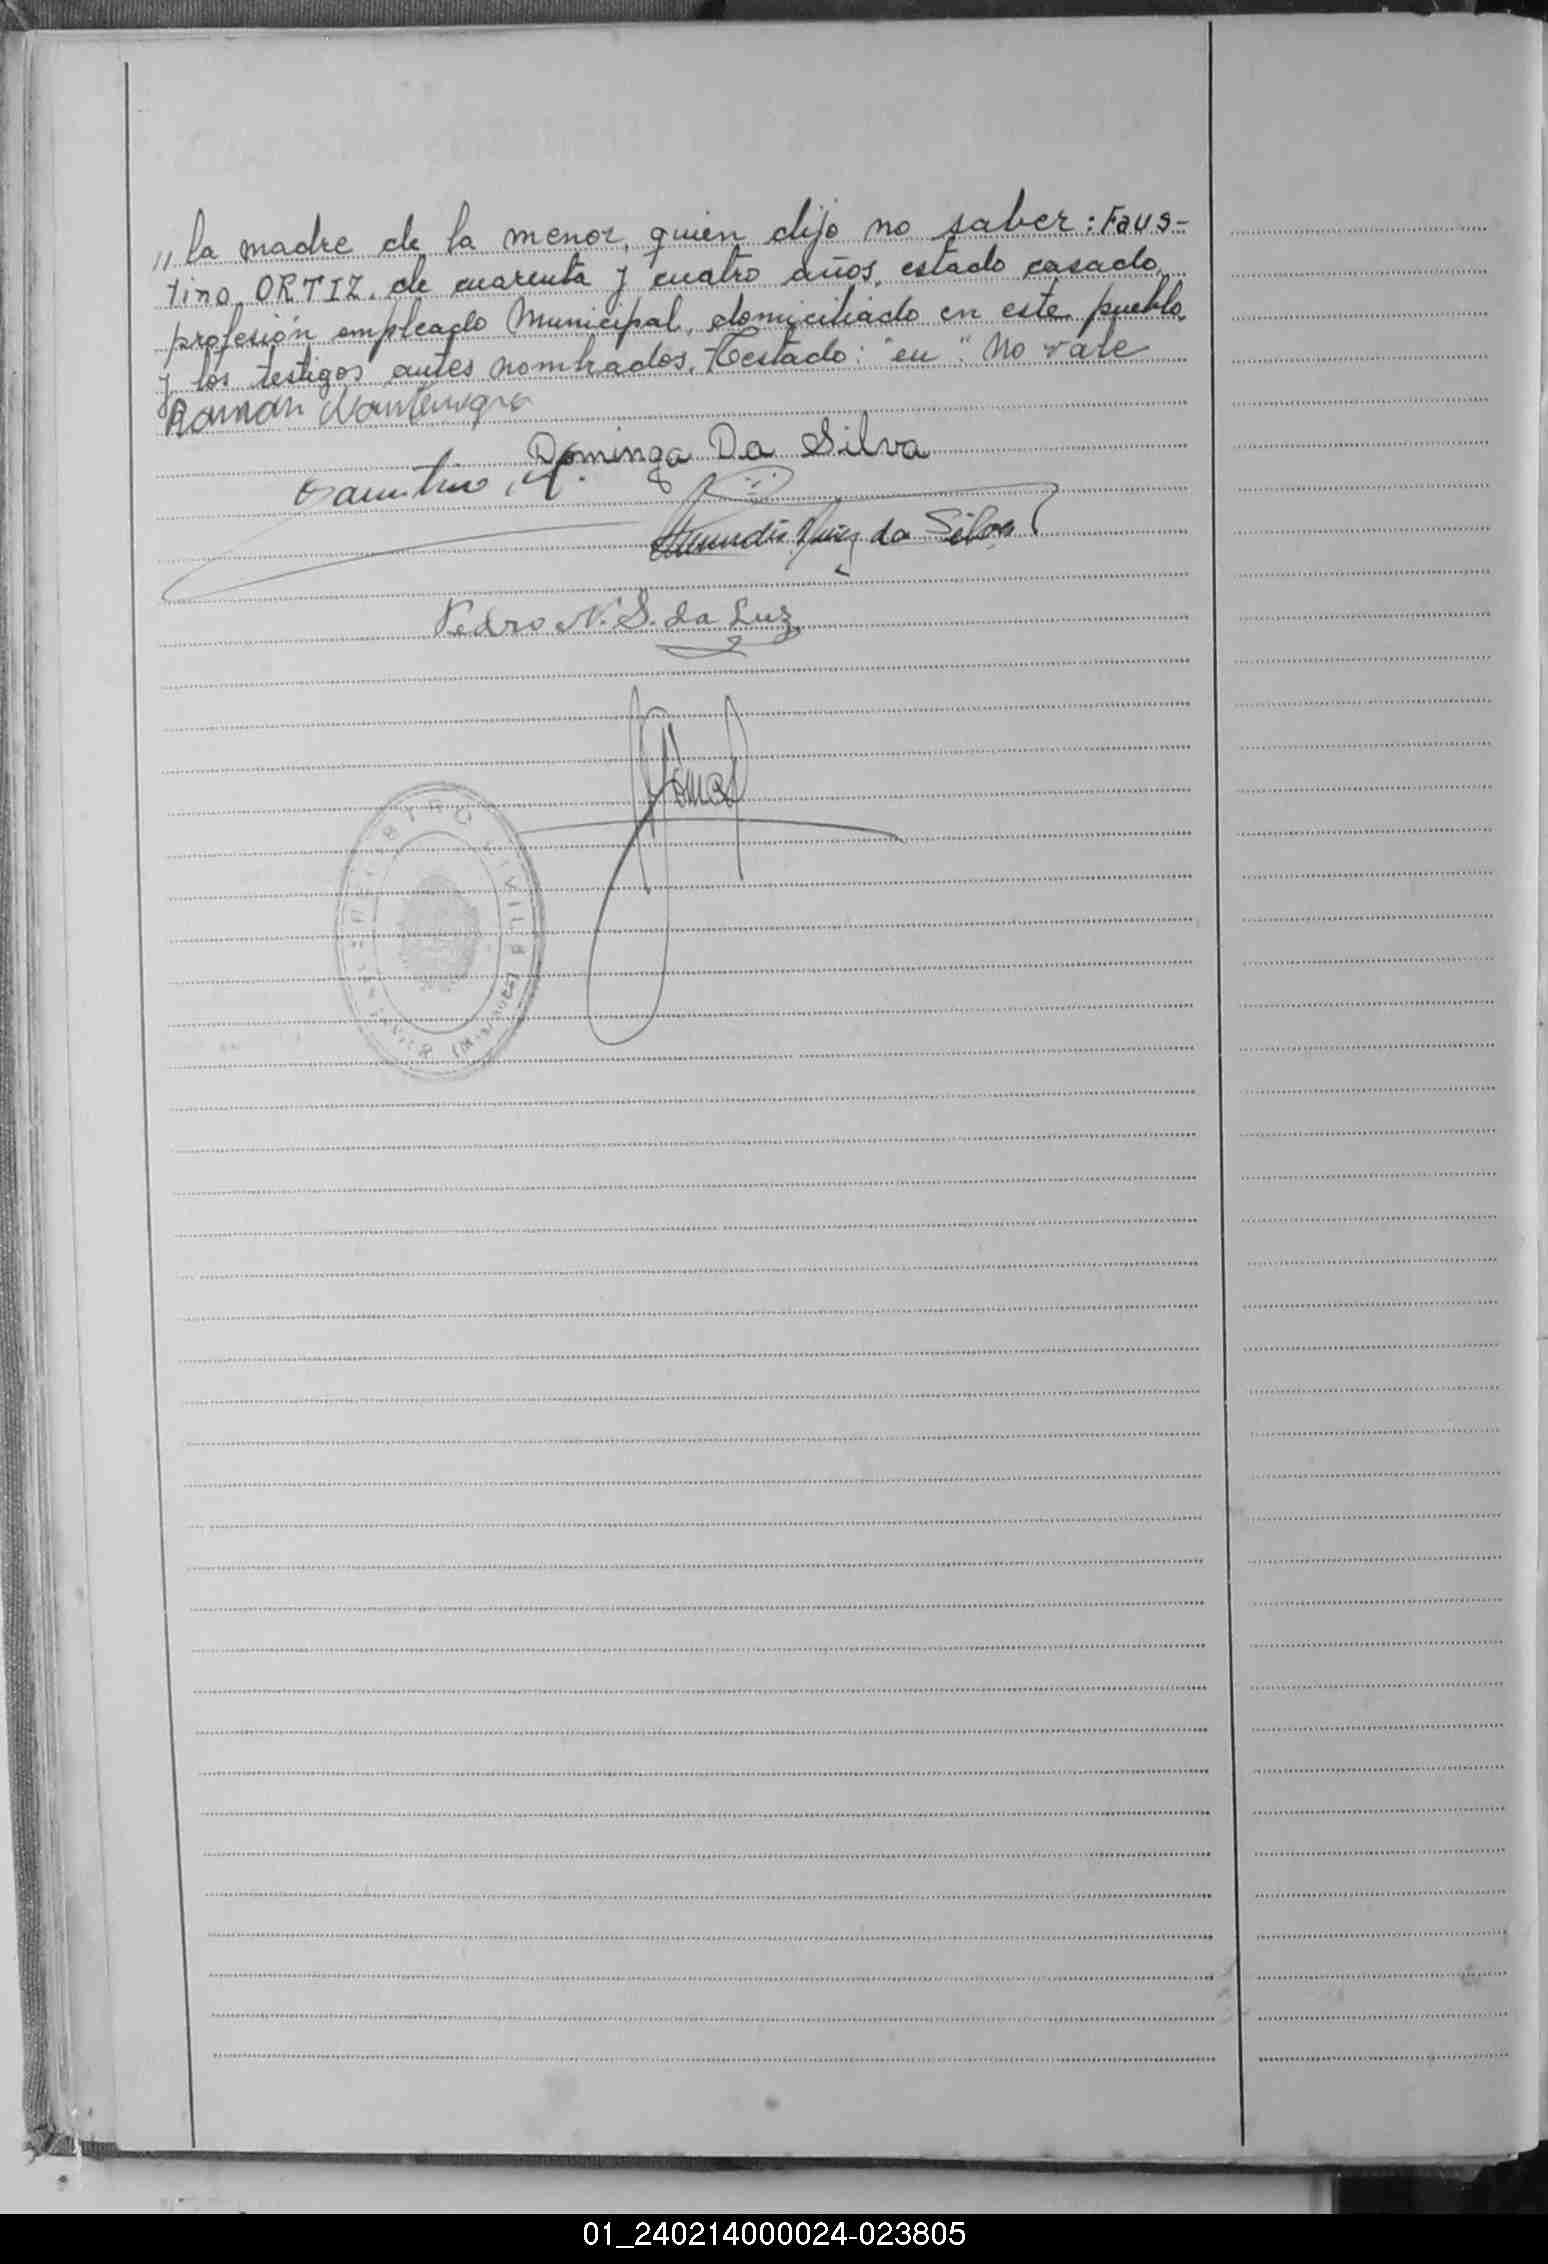 ,, la madre de la menor, quien dijo no saber: Faus-
tino ORTIZ, de cuarenta y cuatro años, estado casado,
profesión empleado Municipal, domiciliado en este pueblo,
y los testigos antes nombrados. Testado: "en". No vale
Ramón Montenegro
Dominga Da Silva
da Silva
Pedro N. S. da Luz
REGISTRO CIVIL
01_240214000024-023805